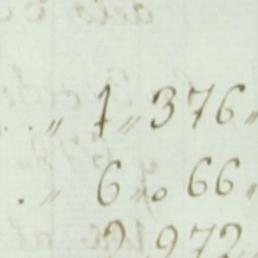 ..〃 1〃376〃
.〃 6〃066〃
2〃972〃